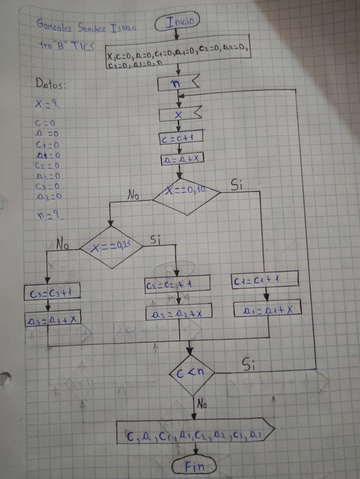 Gonzalez Sanchez Isaac
1ro "B" TICS
Inicio
X, c=0, a=0, c1=0, a1=0, c2=0, a2=0,
c3=0, a3=0, n
Datos:
X=?
c=0
a=0
c1=0
a1=0
c2=0
a2=0
c3=0
a3=0
n=?
n
X
c=c+1
a=a+x
X==0,10
No
Si
X==0,25
No
Si
c3=c3+1
a3=a3+x
c2=c2+1
a2=a2+x
c1=c1+1
a1=a1+x
c<n
Si
No
c, a, c1, a1, c2, a2, c3, a3
Fin